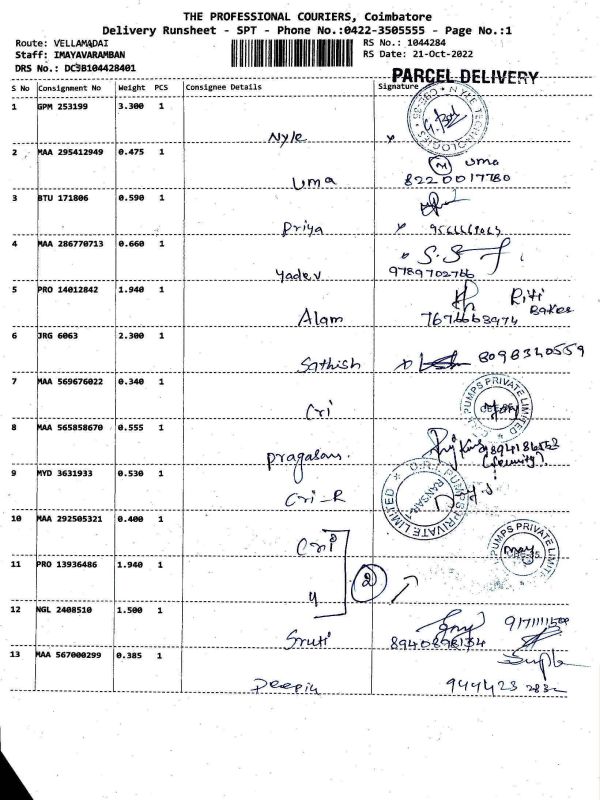 THE PROFESSIONAL COURIERS, Coimbatore
Delivery Runsheet - SPT - Phone No.:0422-3505555 - Page No.:1
Route: VELLAMADAI
RS No.: 1044284
Staff: IMAYAVARAMBAN
RS Date: 21-Oct-2022
DRS No.: DC3B104428401
PARCEL DELIVERY
S No Consignment No Weight PCS Consignee Details Signature
1 GPM 253199 3.300 1
NYLE TECHNOLOGIES
Nyle
2 MAA 295412949 0.475 1
uma
Uma 8220017780
3 BTU 171806 0.590 1
Priya
4 MAA 286770713 0.660 1
Yadev 9789702766
5 PRO 14012842 1.940 1
Alam 7676668974
6 JRG 6063 2.300 1
Sathish 8098340559
7 MAA 569676022 0.340 1
PUMPS PRIVATE LIMITED
Cri
8 MAA 565858670 0.555 1
Pragasam.
(Security).
9 MYD 3631933 0.530 1
C.R.I. PUMPS PRIVATE LIMITED
Cri-R
10 MAA 292505321 0.400 1
Cri
PUMPS PRIVATE LIMITED
11 PRO 13936486 1.940 1
2
12 NGL 2408510 1.500 1
Sruti
13 MAA 567000299 0.385 1
Deepik